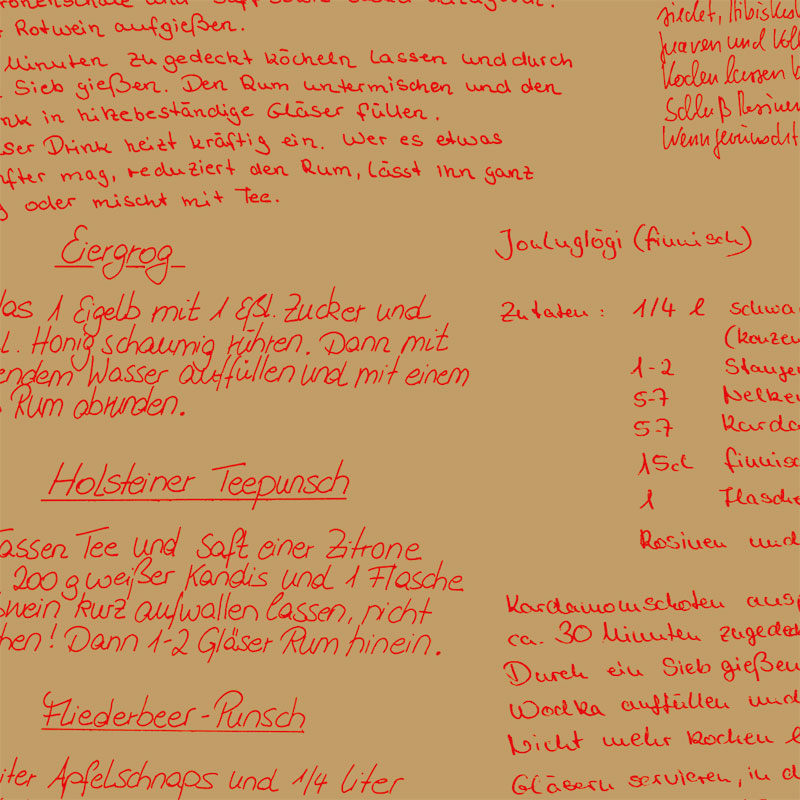 Rotwein aufgießen.
Minuten zugedeckt köcheln lassen und durch
Sieb gießen. Den Rum untermischen und den
in hitzebeständige Gläser füllen.
ser Drink heizt kräftig ein. Wer es etwas
nfter mag, reduziert den Rum, lässt ihn ganz
oder mischt mit Tee.
Eiergrog
las 1 Eigelb mit 1 Eßl. Zucker und
l. Honig schaumig rühren. Dann mit
endem Wasser auffüllen und mit einem
Rum abrunden.
Holsteiner Teepunsch
assen Tee und Saft einer Zitrone
200 g weißer Kandis und 1 Flasche
wein kurz aufwallen lassen, nicht
hen! Dann 1-2 Gläser Rum hinein.
Fliederbeer-Punsch
iter Apfelschnaps und 1/4 Liter
siedet, Hibisku
und
Kochen lassen
Schluß Rosinen
Wenn gewünscht
Jouluglögi (finnisch)
Zutaten: 1/4 l schwa
(konzen
1-2 Stangen
5-7 Nelken
5-7 Karda
15cl finnisc
1 Flasche
Rosinen und
Kardamomschoten aus
ca. 30 Minuten zugedec
Durch ein Sieb gießen
Wodka auffüllen und
Nicht mehr kochen l
Gläsern servieren, in d